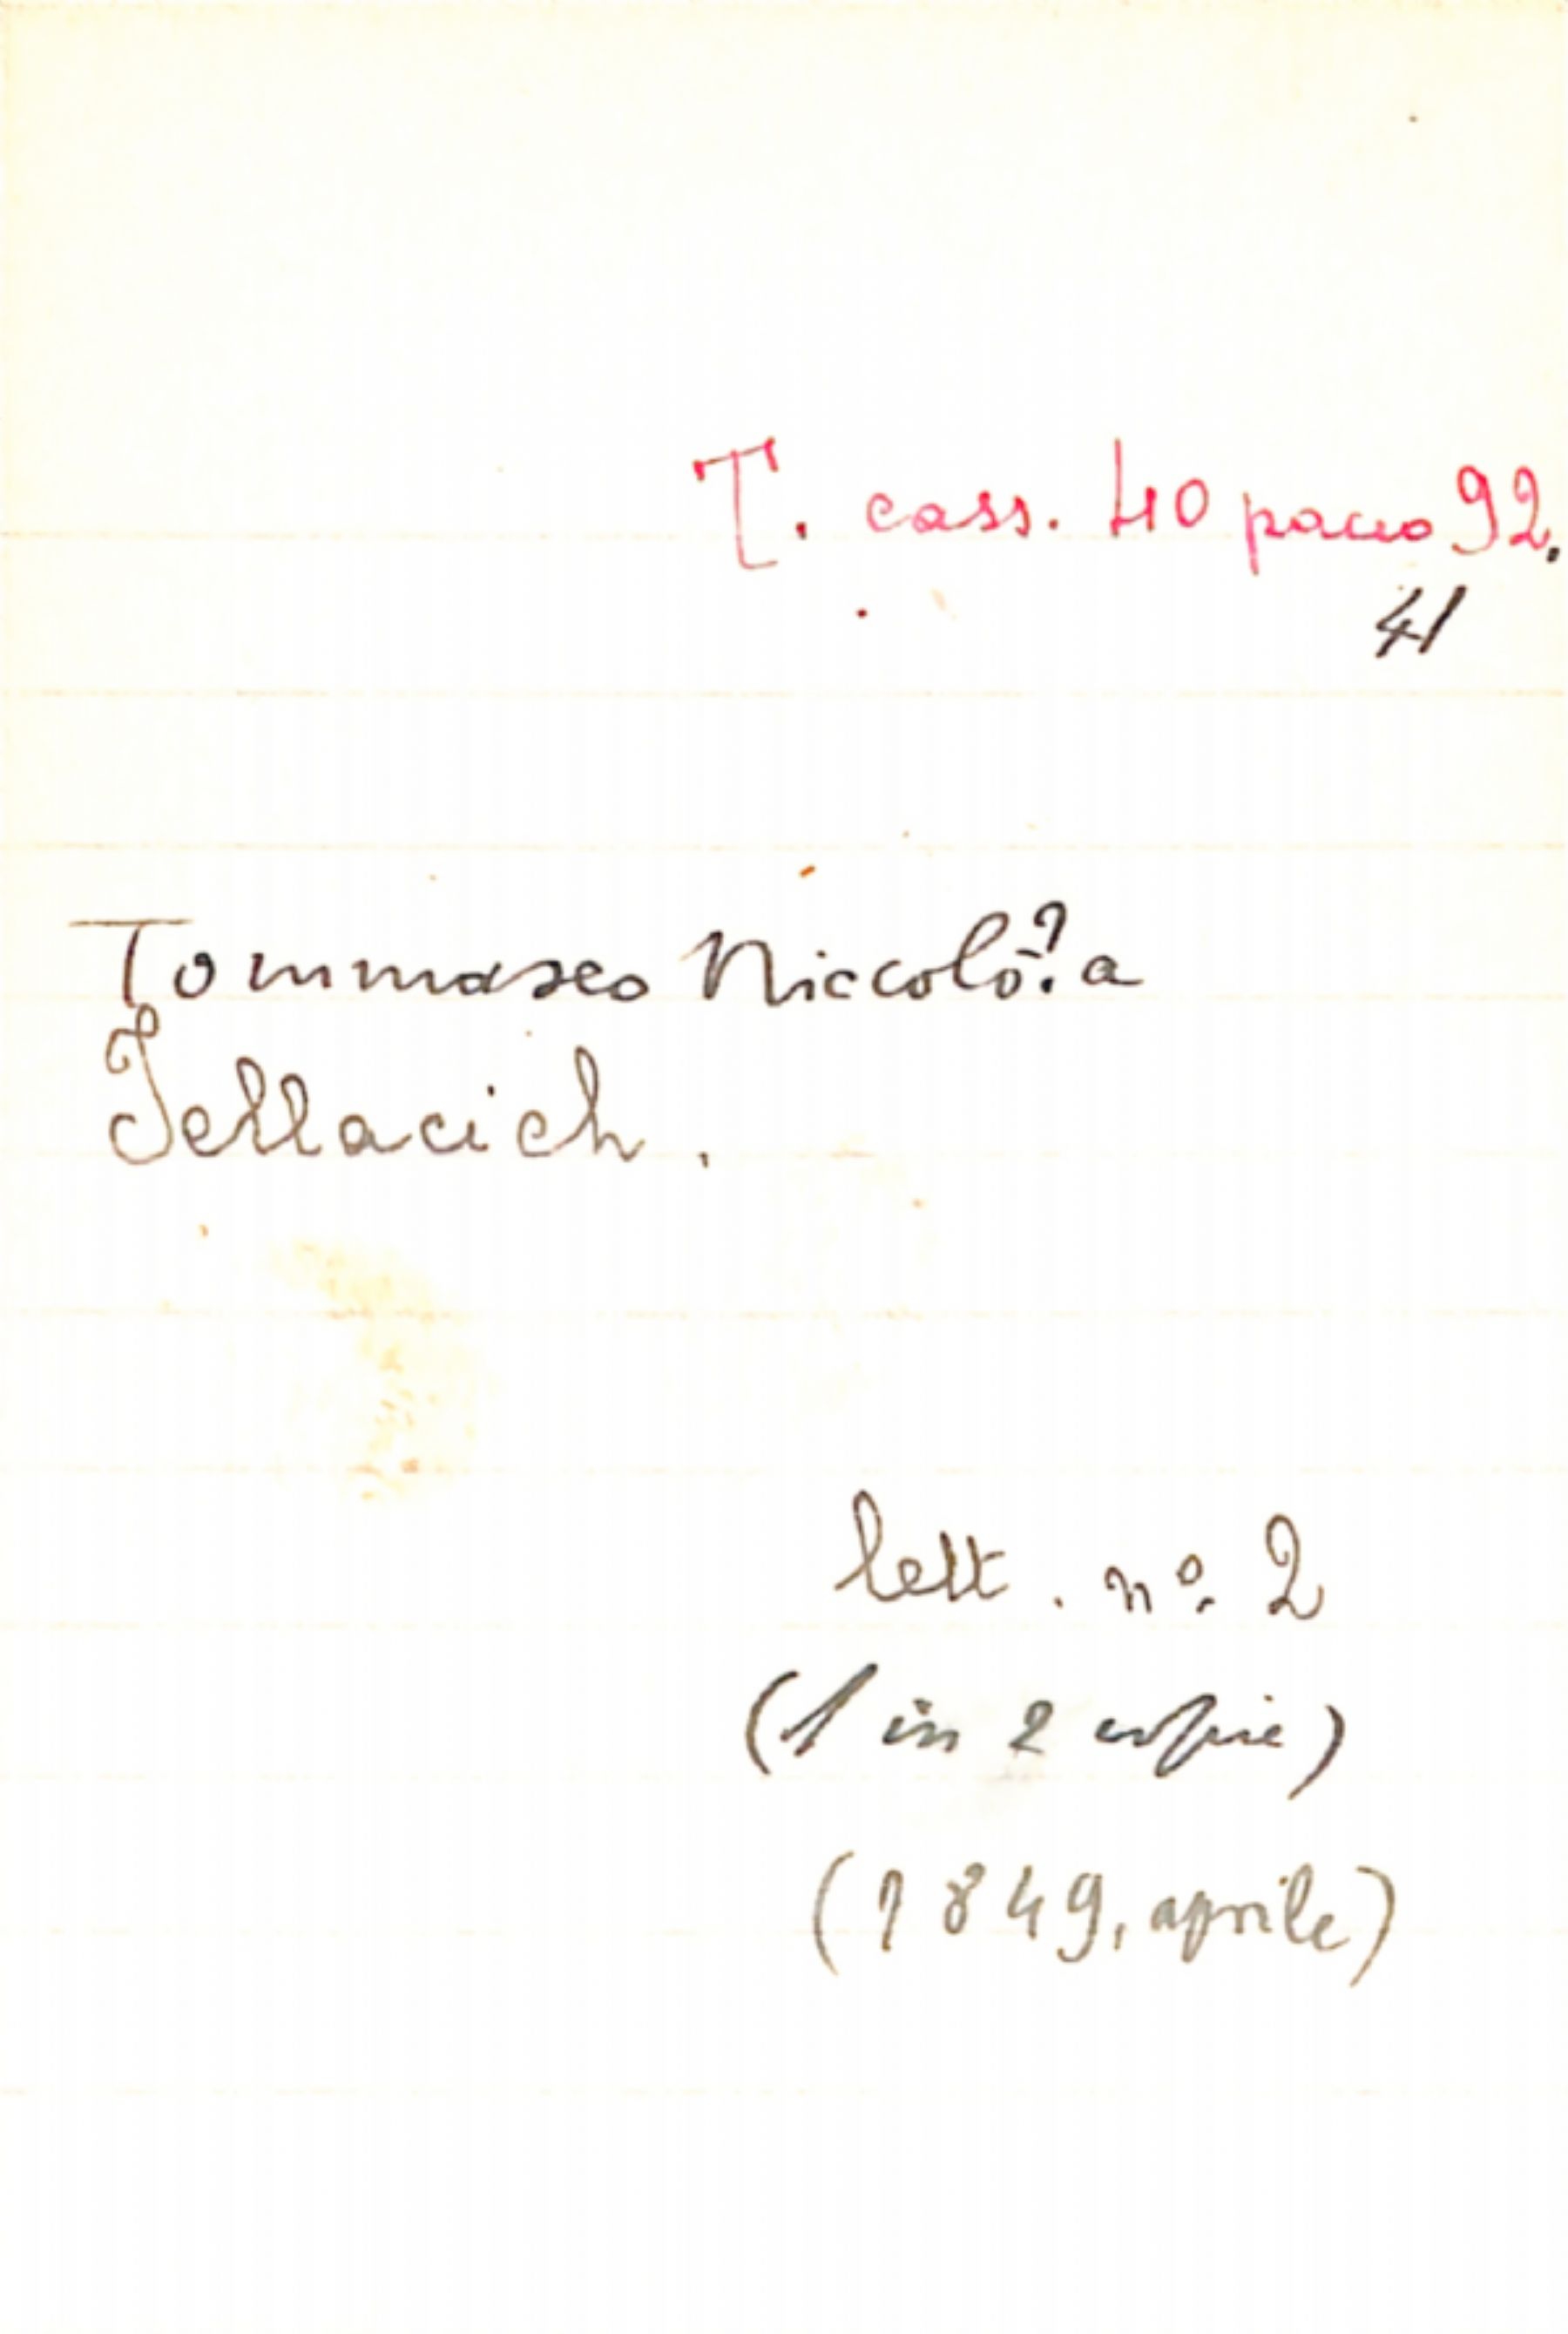 T. cass. 40 pacco 92.
41
Tommaseo Niccolò? a
Jellacich.
lett. nº. 2
(1 in 2 copie)
(1849, aprile)